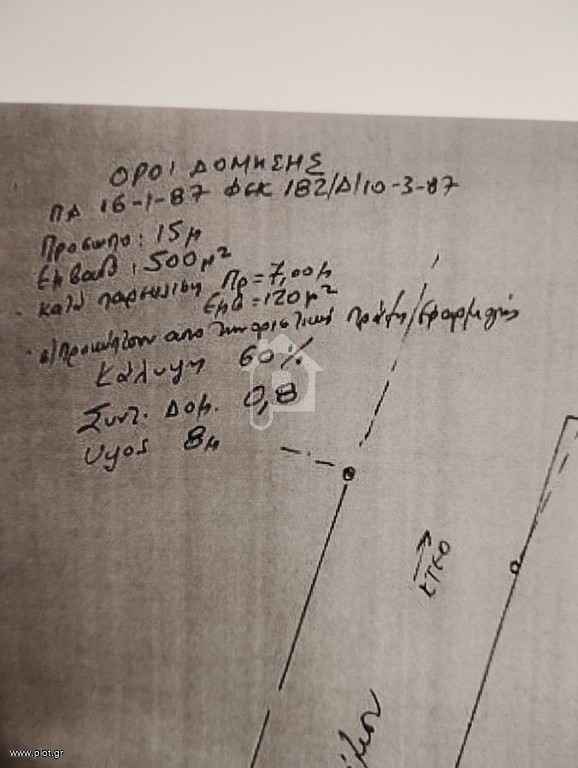 ΟΡΟΙ ΔΟΜΗΣΗΣ
ΠΔ 16-1-87 ΦΕΚ 182/Δ/10-3-87
Πρόσωπο: 15μ
Εμβαδ: 500μ²
κατά παρέκκλιση Πρ=7,00μ
Εμβ=120μ²
από την οριστική πράξη εφαρμογής
Κάλυψη 60%
Συντ. Δομ. 0,8
Υψος 8μ
ΚΤΕΟ
www.plot.gr